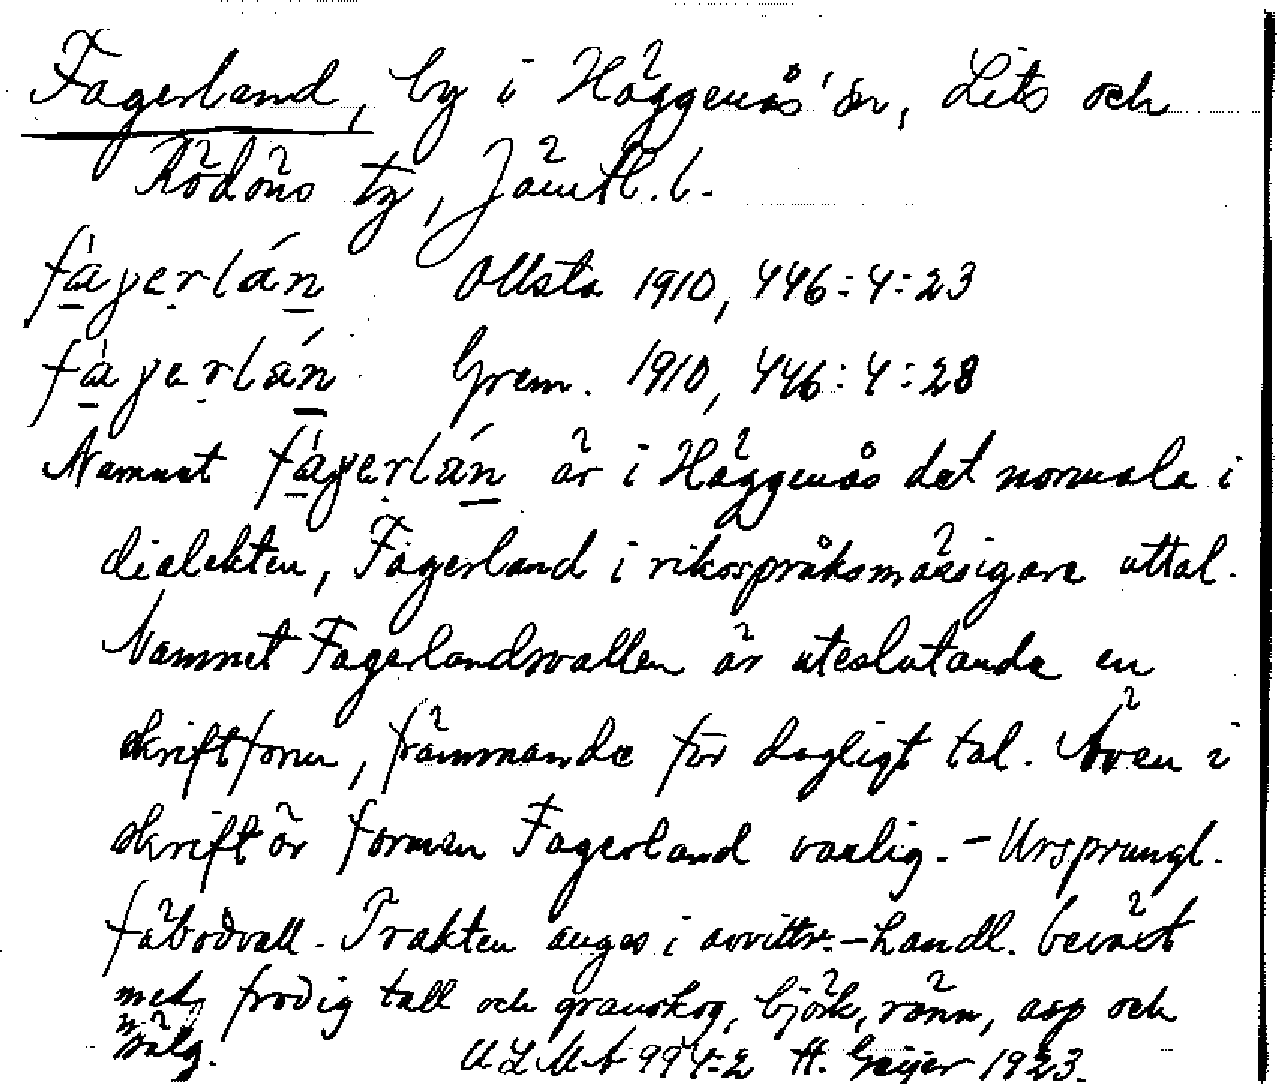 Fagerland, by i Häggenås sn, Lits och
Rödöns tg, Jämtl. l.
fàɣerlán Ollsta 1910, 446:4:23
fàɣerlán Grem. 1910, 446:4:28
Namnet fàɣerlán är i Häggenås det normala i
dialekten, Fagerland i riksspråksmässigare uttal.
Namnet Fagerlandsvallen är uteslutande en
skriftform, främmande för dagligt tal. Även i
skrift är formen Fagerland vanlig. - Ursprungl.
fäbodvall. Trakten anges i avvittr.-handl. beväxt
med frodig tall och granskog, björk, rönn, asp och
sälg. ULMA 994:2 H. Geijer 1923.